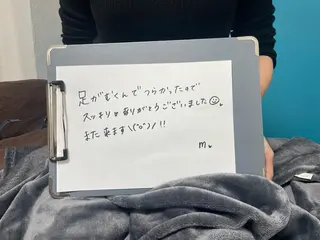 足がむくんでつらかったので
スッキリとありがとうございました☺。
また来ます\(^o^)/!!
m♥